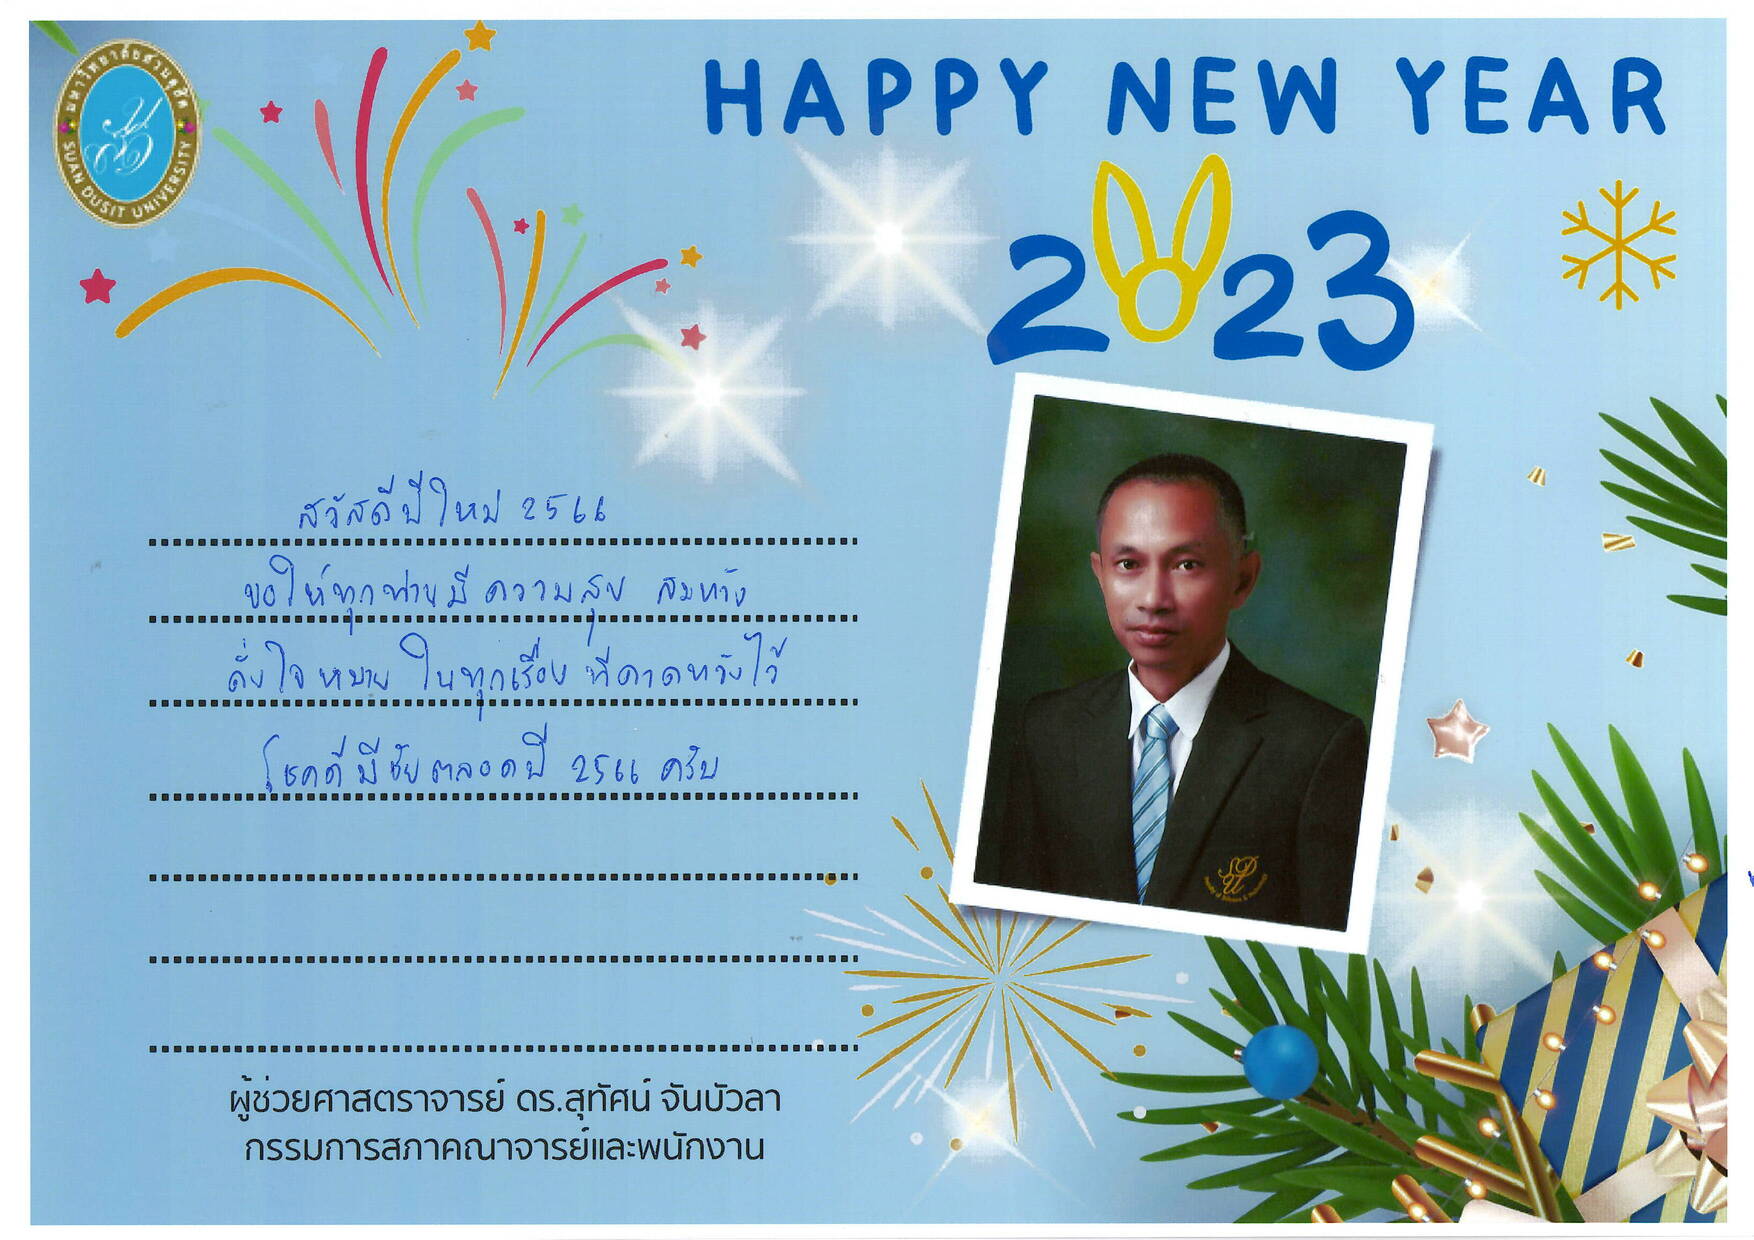 มหาวิทยาลัยสวนดุสิต
SUAN DUSIT UNIVERSITY
HAPPY NEW YEAR
2023
สวัสดีปีใหม่ 2566
ขอให้ทุกท่านมีความสุข สมหวัง
ดั่งใจหมาย ในทุกเรื่อง ที่คาดหวังไว้
โชคดีมีชัยตลอดปี 2566 ครับ
ผู้ช่วยศาสตราจารย์ ดร.สุทัศน์ จันบัวลา
กรรมการสภาคณาจารย์และพนักงาน